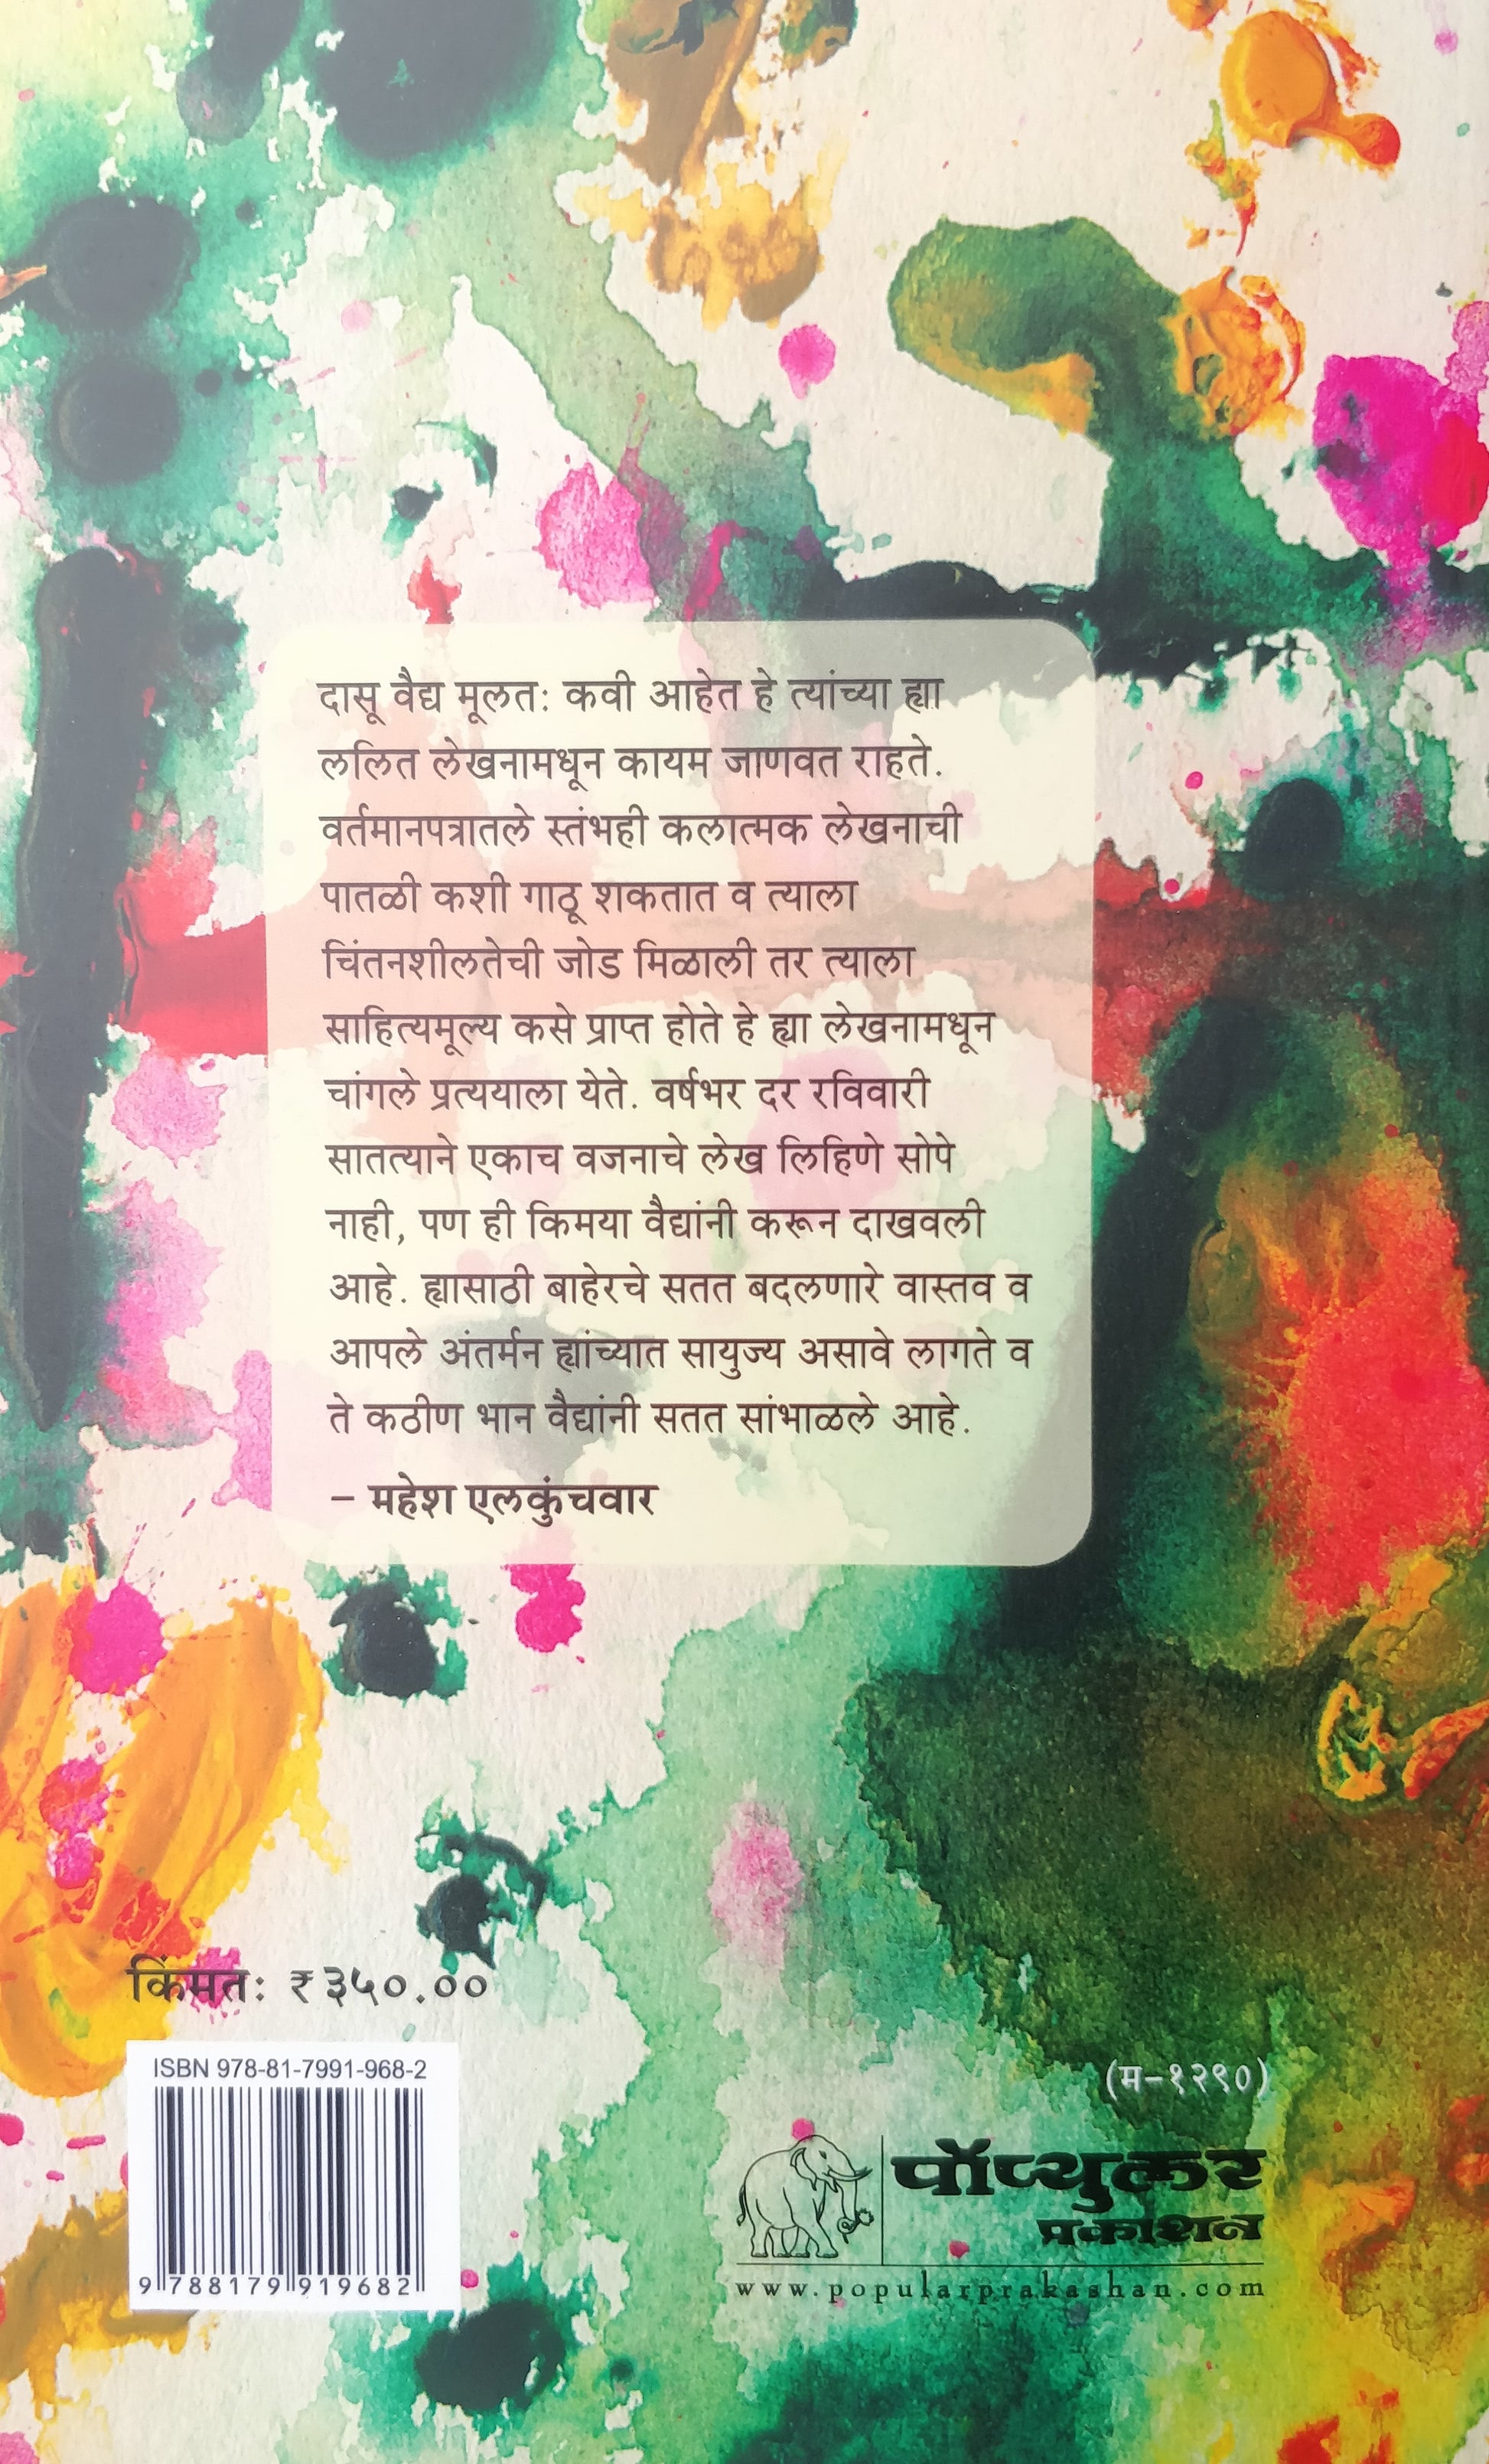 दासू वैद्य मूलत: कवी आहेत हे त्यांच्या ह्या
ललित लेखनामधून कायम जाणवत राहते.
वर्तमानपत्रातले स्तंभही कलात्मक लेखनाची
पातळी कशी गाठू शकतात व त्याला
चिंतनशीलतेची जोड मिळाली तर त्याला
साहित्यमूल्य कसे प्राप्त होते हे ह्या लेखनामधून
चांगले प्रत्ययाला येते. वर्षभर दर रविवारी
सातत्याने एकाच वजनाचे लेख लिहिणे सोपे
नाही, पण ही किमया वैद्यांनी करून दाखवली
आहे. ह्यासाठी बाहेरचे सतत बदलणारे वास्तव व
आपले अंतर्मन ह्यांच्यात सायुज्य असावे लागते व
ते कठीण भान वैद्यांनी सतत सांभाळले आहे.
– महेश एलकुंचवार
किंमत: ₹ ३५०.००
ISBN 978-81-7991-968-2
9 788179 919682
(म-१२९०)
पॉप्युलर
प्रकाशन
www.popularprakashan.com